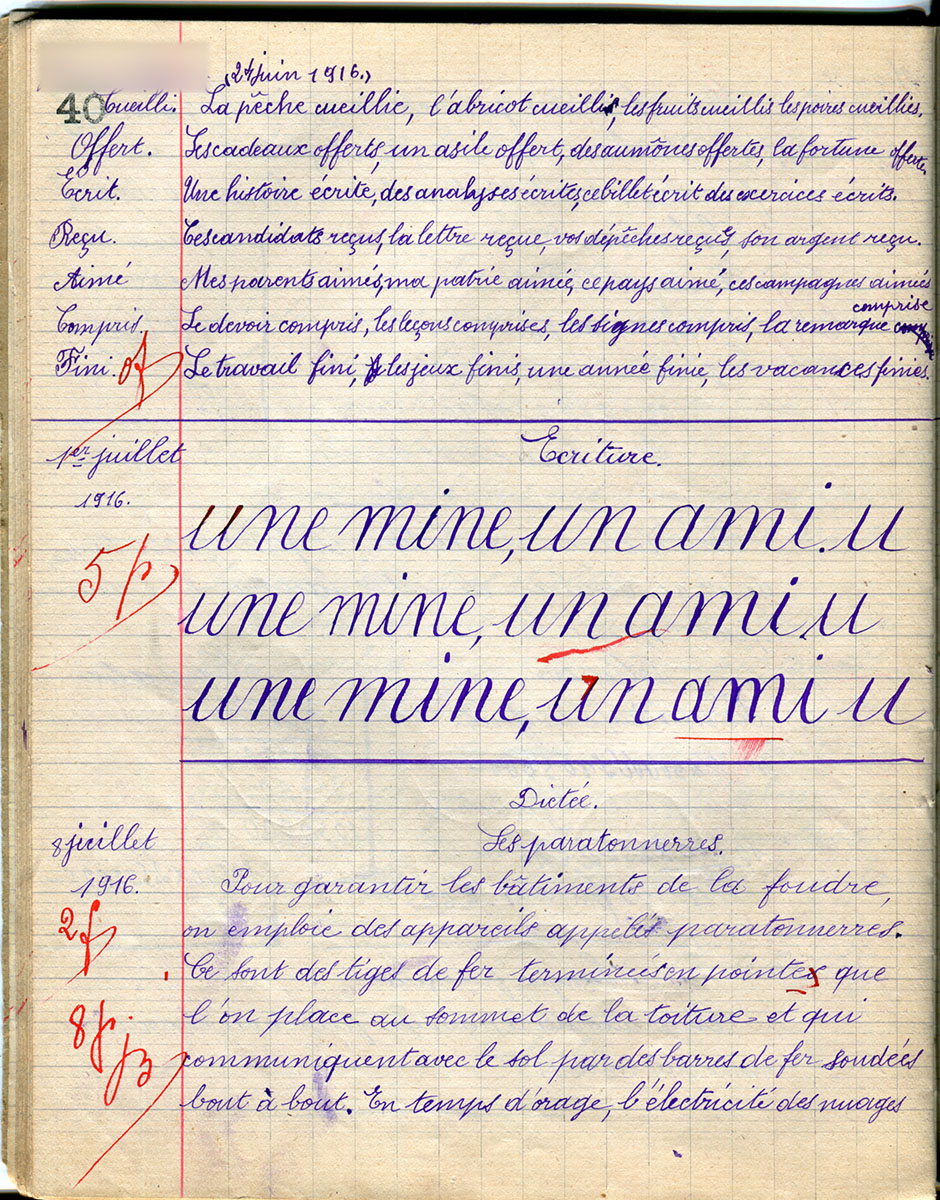 (24 juin 1916.)
40 Cueilli. La pêche cueillie, l'abricot cueilli, les fruits cueillis les poires cueillies.
Offert. Les cadeaux offerts, un asile offert, des aumônes offertes, la fortune offerte.
Ecrit. Une histoire écrite, des analyses écrites, ce billet écrit des exercices écrits.
Reçu. Ces candidats reçus, la lettre reçue, vos dépêches reçues, son argent reçu.
Aimé Mes parents aimés, ma patrie aimée, ce pays aimé, ces campagnes aimées
comprise
Compris. Le devoir compris, les leçons comprises, les signes compris, la remarque
Fini. 0f Le travail fini, les jeux finis, une année finie, les vacances finies.
1er juillet Ecriture.
1916.
une mine, un ami. u
5 p
une mine, un ami, u
une mine, un ami u
Dictée.
8 juillet Les paratonnerres.
1916. Pour garantir les bâtiments de la foudre,
2f on emploie des appareils appelés paratonnerres.
Ce sont des tiges de fer terminées en pointes que
8p l'on place au sommet de la toiture et qui
communiquent avec le sol par des barres de fer soudées
bout à bout. En temps d'orage, l'électricité des nuages